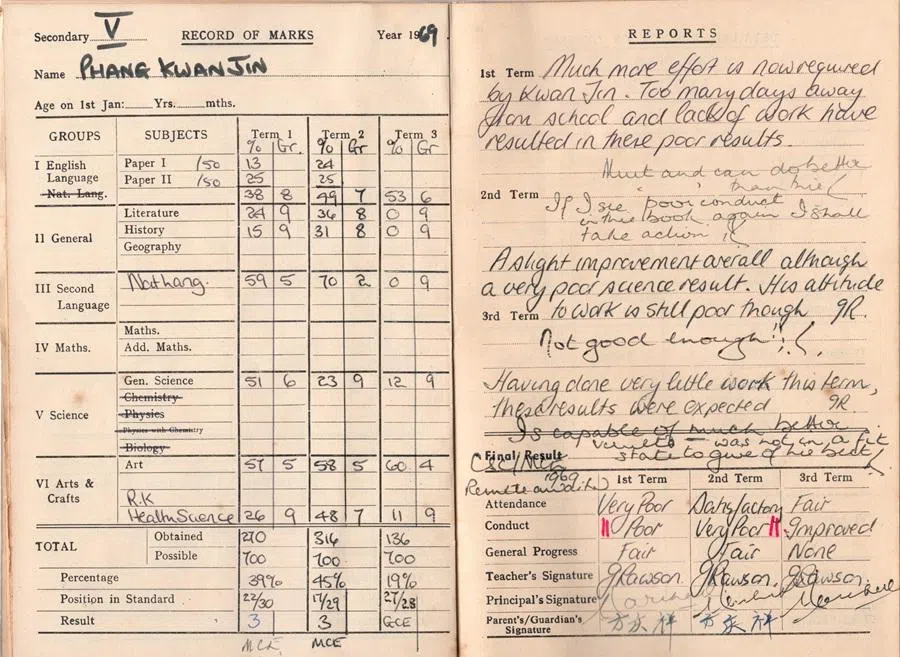 Secondary V RECORD OF MARKS Year 1969
Name PHANG KWAN JIN
Age on 1st Jan: Yrs. mths.
GROUPS SUBJECTS Term 1 Term 2 Term 3
% Gr. % Gr % Gr
I English Language Paper I /50 13 24
Paper II /50 25 25
Nat. Lang. 38 8 49 7 53 6
II General Literature 24 9 36 8 0 9
History 15 9 31 8 0 9
Geography
III Second Language Nat Lang. 59 5 70 2 0 9
IV Maths. Maths.
Add. Maths.
V Science Gen. Science 51 6 23 9 12 9
Chemistry
Physics
Physics with Chemistry
Biology
VI Arts & Crafts Art 57 5 58 5 60 4
R.K
Health Science 26 9 48 7 11 9
TOTAL Obtained 270 316 136
Possible 700 700 700
Percentage 39% 45% 19%
Position in Standard 22/30 17/29 27/28
Result 3 3 GCE
MCE MCE
REPORTS
1st Term Much more effort is now required
by Kwan Jin. Too many days away
from school and lack of work have
resulted in these poor results.
Must and can do better
than this
2nd Term If I see poor conduct
in this book again I shall
take action
A slight improvement overall although
a very poor science result. His attitude
3rd Term to work is still poor though JR.
Not good enough!!
Having done very little work this term,
these results were expected JR
Is capable of much better
was not in a fit
Final Result state to give of his best
1969
1st Term 2nd Term 3rd Term
Attendance Very Poor Satisfactory Fair
Conduct Poor Very Poor Improved
General Progress Fair Fair None
Teacher's Signature JRawson. JRawson. JRawson.
Principal's Signature
Parent's/Guardian's Signature